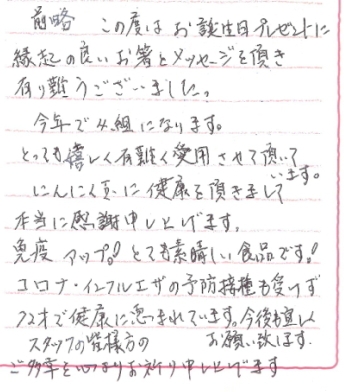 前略 この度はお誕生日プレゼントに
縁起の良いお箸とメッセージを頂き
有り難うございました。
今年で4組になります。
とっても嬉しく有難く愛用させて頂いて
います。
にんにく玉に健康を頂きまして
本当に感謝申し上げます。
免疫アップ!とても素晴しい食品です!
コロナ・インフルエザの予防接種も受けず
72才で健康に恵まれています。今後も宜しく
お願い致します。
スタッフの皆様方の
ご多幸を心よりお祈り申し上げます